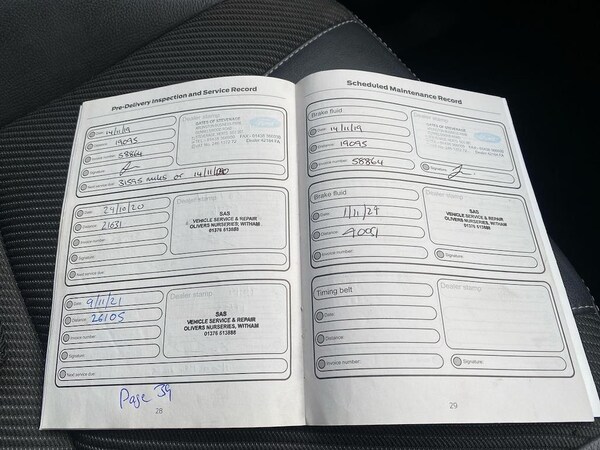 Pre-Delivery Inspection and Service Record
Date: 14/11/19
Distance: 19095
Invoice number: 58864
Signature:
Next service due: 31595 miles or 14/11/
Dealer stamp
GATES OF STEVENAGE
Date: 24/10/20
Distance: 21031
Invoice number:
Signature:
Next service due:
Dealer stamp
SAS
VEHICLE SERVICE & REPAIR
OLIVERS NURSERIES, WITHAM
01376 513888
Date: 9/11/21
Distance: 26105
Invoice number:
Signature:
Next service due:
Dealer stamp
SAS
VEHICLE SERVICE & REPAIR
OLIVERS NURSERIES, WITHAM
01376 513888
Page 34
28
Scheduled Maintenance Record
Brake fluid
Date: 14/11/19
Distance: 19095
Invoice number: 58864
Dealer stamp
Signature:
Brake fluid
Date: 1/11/24
Distance:
Invoice number:
Dealer stamp
SAS
VEHICLE SERVICE & REPAIR
OLIVERS NURSERIES, WITHAM
01376 513888
Signature:
Timing belt
Date:
Distance:
Invoice number:
Dealer stamp
Signature:
29